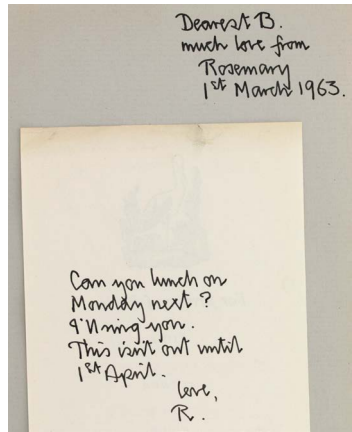 Dearest B.
much love from
Rosemary
1st March 1963.
Can you lunch on
Monday next?
I'll ring you.
This isn't out until
1st April.
love,
R.